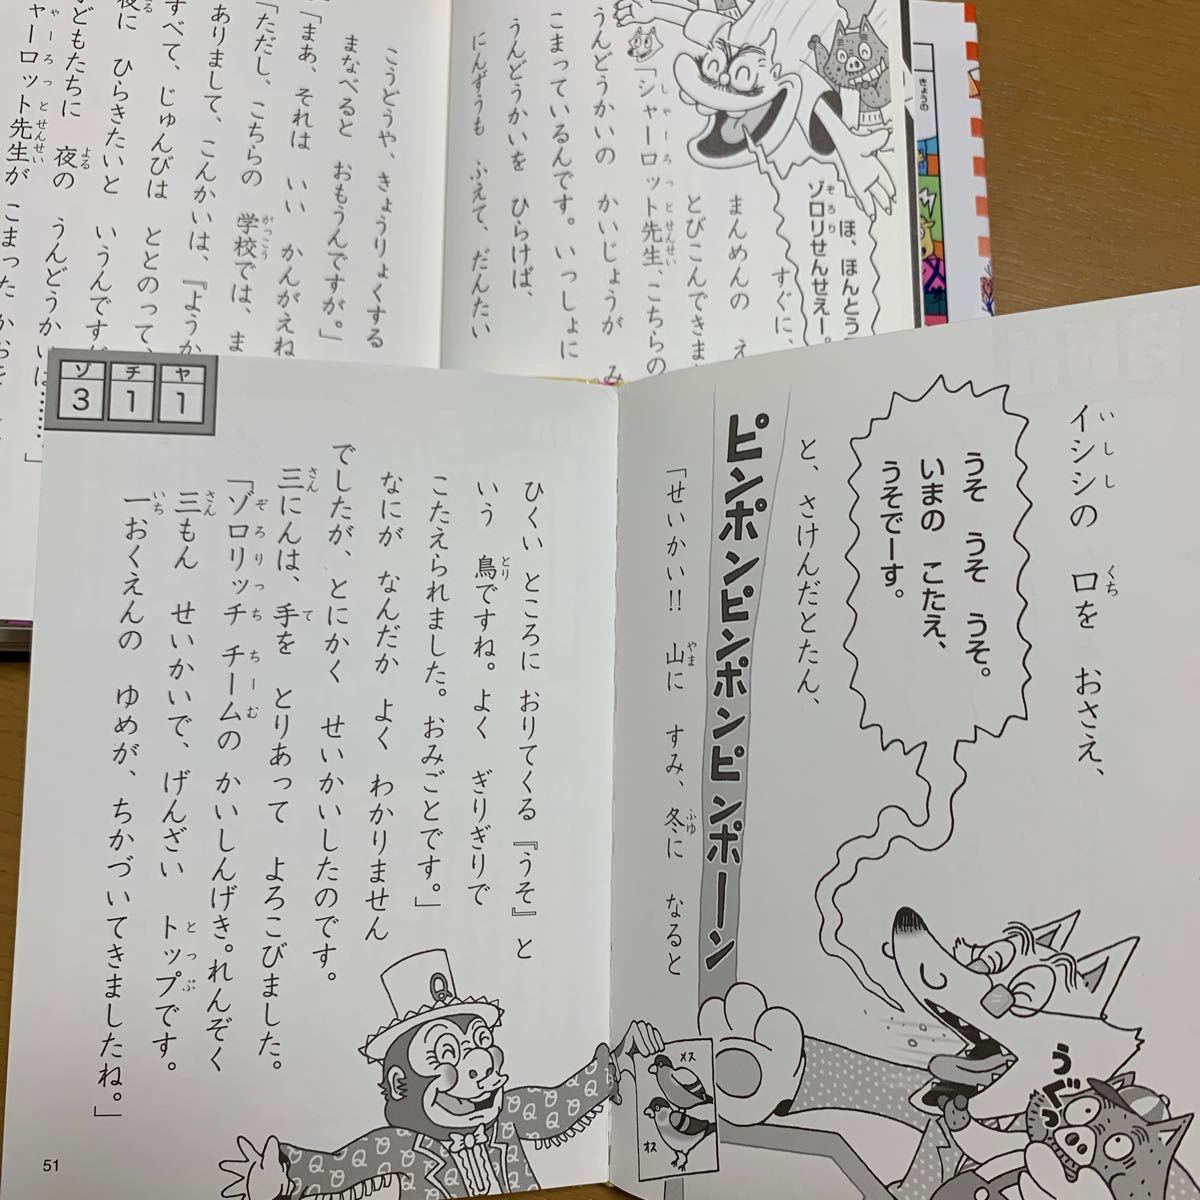 きょうの
ほ、ほんとう
ゾロリせんせえー。
すぐに、
まんめんの え
とびこんできま
「シャーロット先生、こちらの
うんどうかいの かいじょうが み
こまっているんです。いっしょに
うんどうかいを ひらけば、
にんずうも ふえて、だんたい
こうどうや、きょうりょくする
まなべると おもうんですが。」
「まあ、それは いい かんがえね
「ただし、こちらの 学校では、ま
ありまして、こんかいは、『ようか
すべて、じゅんびは ととのって、
夜に ひらきたいと いうんです
子どもたちに 夜の うんどうかいは……」
シャーロット先生が こまった かおを
イシシの 口を おさえ、
うそ うそ うそ。
いまの こたえ、
うそでーす。
と、さけんだとたん、
ピンポンピンポンピンポンピンポーン
「せいかい!! 山に すみ、冬に なると
うぐっ
メス
オス
ゾ チ ヤ
3 1 1
ひくい ところに おりてくる『うそ』と
いう 鳥ですね。よく ぎりぎりで
こたえられました。おみごとです。」
なにが なんだか よく わかりません
でしたが、とにかく せいかいしたのです。
三にんは、手を とりあって よろこびました。
「ゾロリッチ チームの かいしんげき。れんぞく
三もん せいかいで、げんざい トップです。
一おくえんの ゆめが、ちかづいてきましたね。」
51